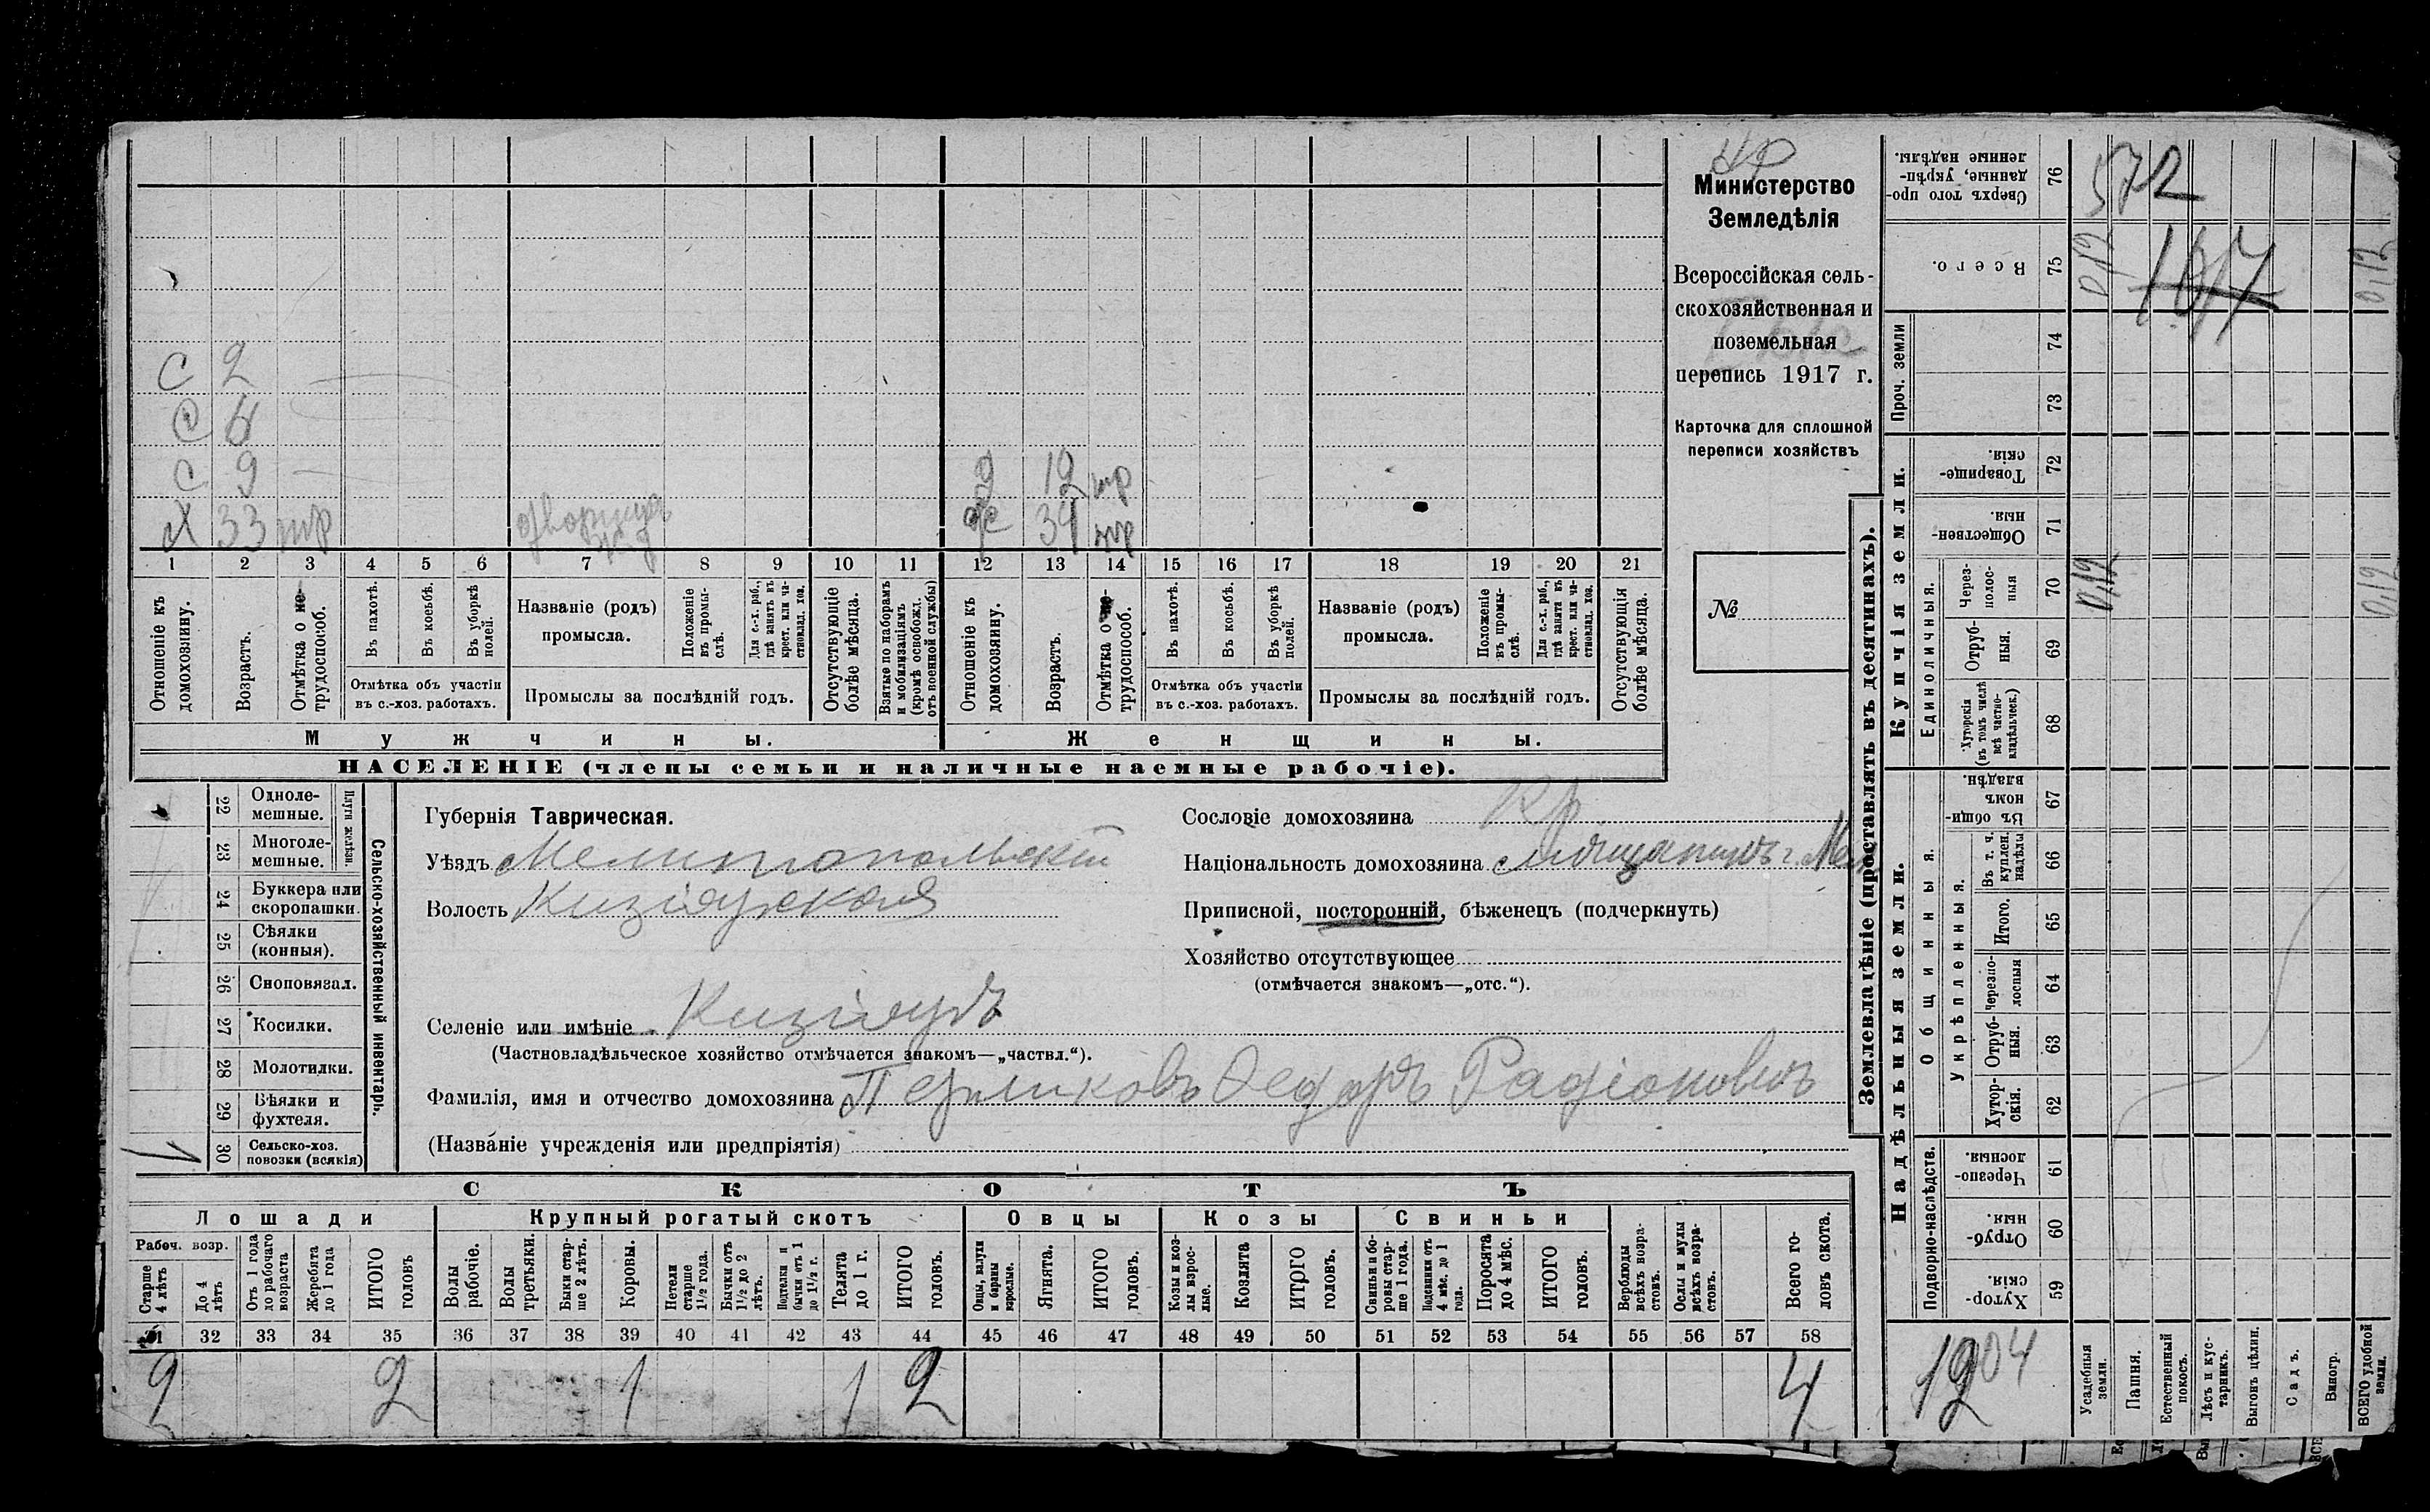 Министерство
Земледѣлія
Всероссійская сель-
скохозяйственная и
поземельная
перепись 1917 г.
Карточка для сплошной
переписи хозяйствъ
№
С 2
С 9
Х 33 тр
9 12 тр
34 тр
1 2 3 4 5 6 7 8 9 10 11 12 13 14 15 16 17 18 19 20 21
Отношеніе къ домохозяину.
Возрастъ.
Отмѣтка о не-трудоспособ.
Въ пахотѣ.
Въ косьбѣ.
Въ уборкѣ полей.
Отмѣтка объ участіи въ с.-хоз. работахъ.
Названіе (родъ) промысла.
Положеніе въ промы-слѣ.
Для с.-х. раб., гдѣ занятъ въ крест. или ча-стновлад. хоз.
Промыслы за послѣдній годъ.
Отсутствующіе болѣе мѣсяца.
Взятые по наборамъ и мобилизаціямъ (кромѣ освобожд. отъ военной службы)
Отношеніе къ домохозяину.
Возрастъ.
Отмѣтка о не-трудоспособ.
Въ пахотѣ.
Въ косьбѣ.
Въ уборкѣ полей.
Отмѣтка объ участіи въ с.-хоз. работахъ.
Названіе (родъ) промысла.
Положеніе въ промы-слѣ.
Для с.-х. раб., гдѣ занята въ крест. или ча-стновлад. хоз.
Промыслы за послѣдній годъ.
Отсутствующія болѣе мѣсяца.
Мужчины.
Женщины.
НАСЕЛЕНІЕ (члены семьи и наличные наемные рабочіе).
22 Одноле-мешные.
23 Многоле-мешные.
Плуги желѣзн.
24 Буккера или скоропашки.
25 Сѣялки (конныя).
26 Сноповязал.
27 Косилки.
28 Молотилки.
29 Вѣялки и фухтеля.
30 Сельско-хоз. повозки (всякія)
Сельско-хозяйственный инвентарь.
Губернія Таврическая.
Уѣздъ Мелитопольскій
Волость Кизіярская
Селеніе или имѣніе Кизіяръ
(Частновладѣльческое хозяйство отмѣчается знакомъ—„частвл.“).
Фамилія, имя и отчество домохозяина Перликовъ Федоръ Радіоновичъ
(Названіе учрежденія или предпріятія)
Сословіе домохозяина Кр
Національность домохозяина мѣщанинъ г. Мел
Приписной, посторонній, бѣженецъ (подчеркнуть)
Хозяйство отсутствующее
(отмѣчается знакомъ—„отс.“).
СКОТЪ
Лошади
Рабоч. возр.
Старше 4 лѣтъ
До 4 лѣтъ
Отъ 1 года до рабочаго возраста
Жеребята до 1 года
ИТОГО головъ
Крупный рогатый скотъ
Волы рабочіе.
Волы третьяки.
Быки стар-ше 2 лѣтъ.
Коровы.
Нетели старше 1½ года.
Бычки отъ 1½ до 2 лѣтъ.
Подтелки и бычки отъ 1 до 1½ г.
Телята до 1 г.
ИТОГО головъ.
Овцы
Овцы, валухи и бараны взрослые.
Ягнята.
ИТОГО головъ.
Козы
Козы и коз-лы взрос-лые.
Козлята
ИТОГО головъ.
Свиньи
Свиньи и бо-ровы стар-ше 1 года.
Подсвинки отъ 4 мѣс. до 1 года.
Поросята до 4 мѣс.
ИТОГО головъ.
Верблюды всѣхъ возра-стовъ.
Ослы и мулы всѣхъ возра-стовъ.
Всего го-ловъ скота.
31 32 33 34 35 36 37 38 39 40 41 42 43 44 45 46 47 48 49 50 51 52 53 54 55 56 57 58
2 2 1 1 2 4
Землевладѣніе (проставлять въ десятинахъ).
Купчія земли.
Надѣльныя земли.
Сверхъ того про-данные, укрѣп-ленные надѣлы. 76
572
Всего. 75
0,12
1017
0,12
Проч. земли
74
73
Товарище-скія. 72
Обществен-ныя. 71
Единоличныя.
Через-полос-ныя 70
0,12
0,12
Отруб-ныя. 69
Хуторскія (въ томъ числѣ всѣ частно-владѣльческ.) 68
Общинныя.
Въ общи-номъ владѣн. 67
Укрѣпленныя.
Въ т. ч. куплен. надѣлы 66
Итого. 65
Черезпо-лосныя 64
Отруб-ныя. 63
Хутор-скія. 62
Подворно-наслѣдств.
Черезпо-лосныя. 61
Отруб-ныя. 60
Хутор-скія. 59
1204
Усадебныя земли.
Пашня.
Естественный покосъ.
Лѣсъ и кус-тарникъ.
Выгонъ цѣлин.
Садъ.
Виногр.
ВСЕГО удобной земли.